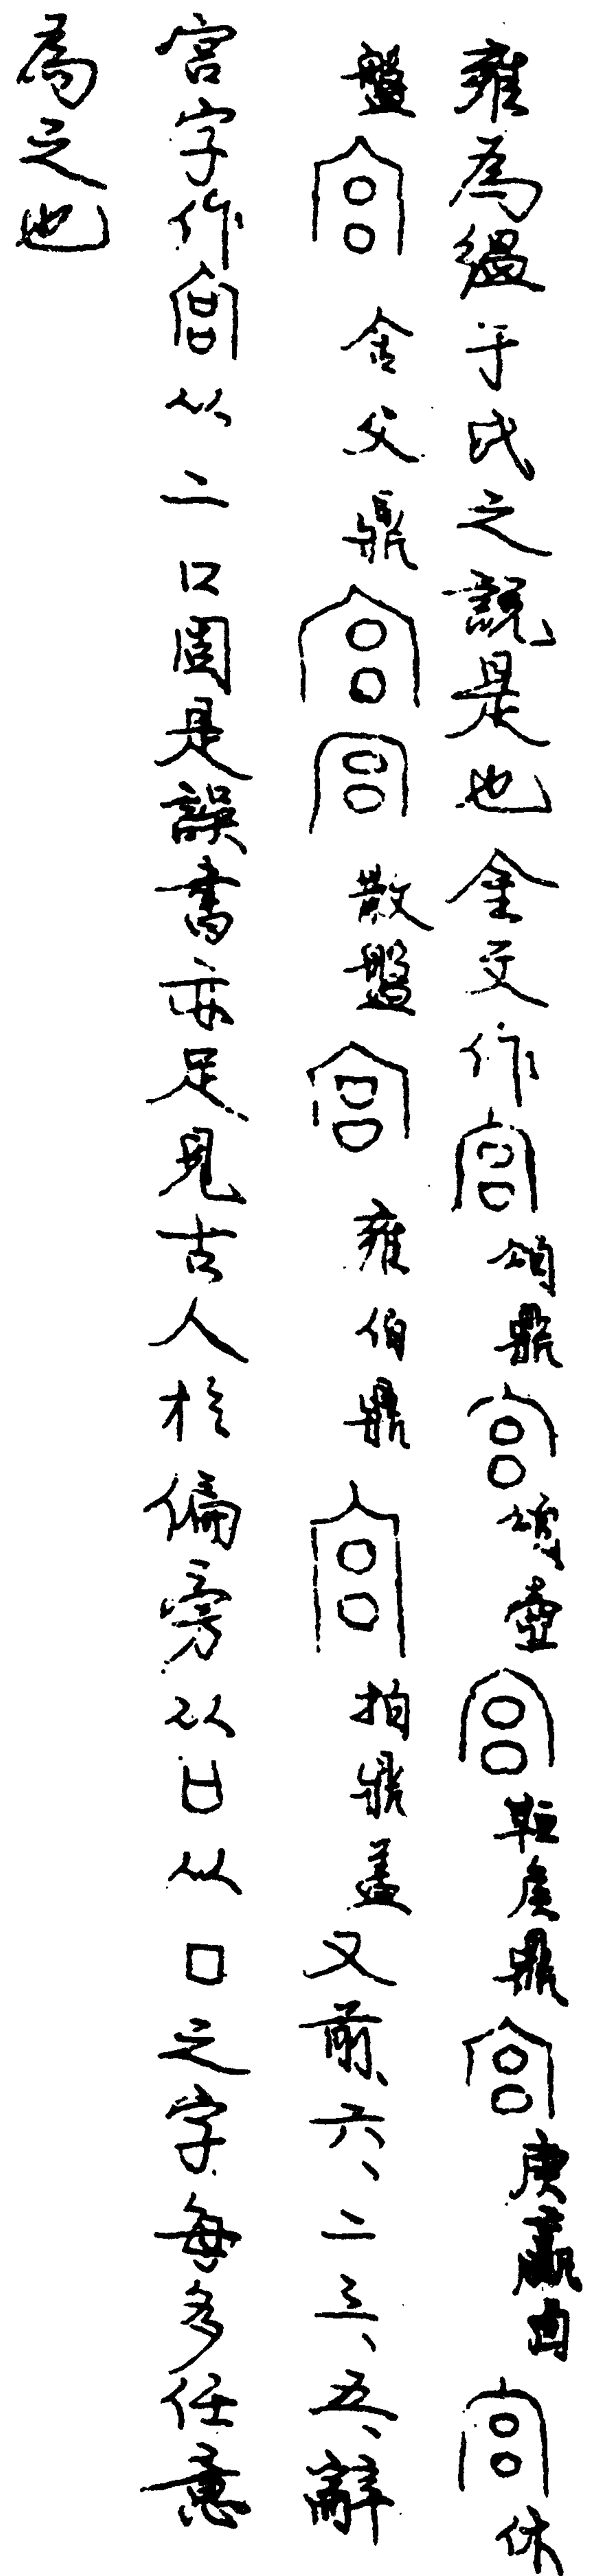 雍為緼于氏之說是也金文作宮頌鼎宮頌壺宮趞疾鼎宮庚嬴卣宮休
盤宮舍父鼎宮宮散盤宮雍伯鼎宮拍鼎蓋又前六、二三、五、辭
宮字作宮从二口固是誤書亦足見古人於偏旁从日从口之字每多任意
為之也